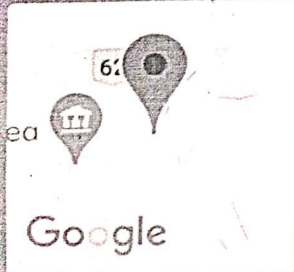 62
ea
Google